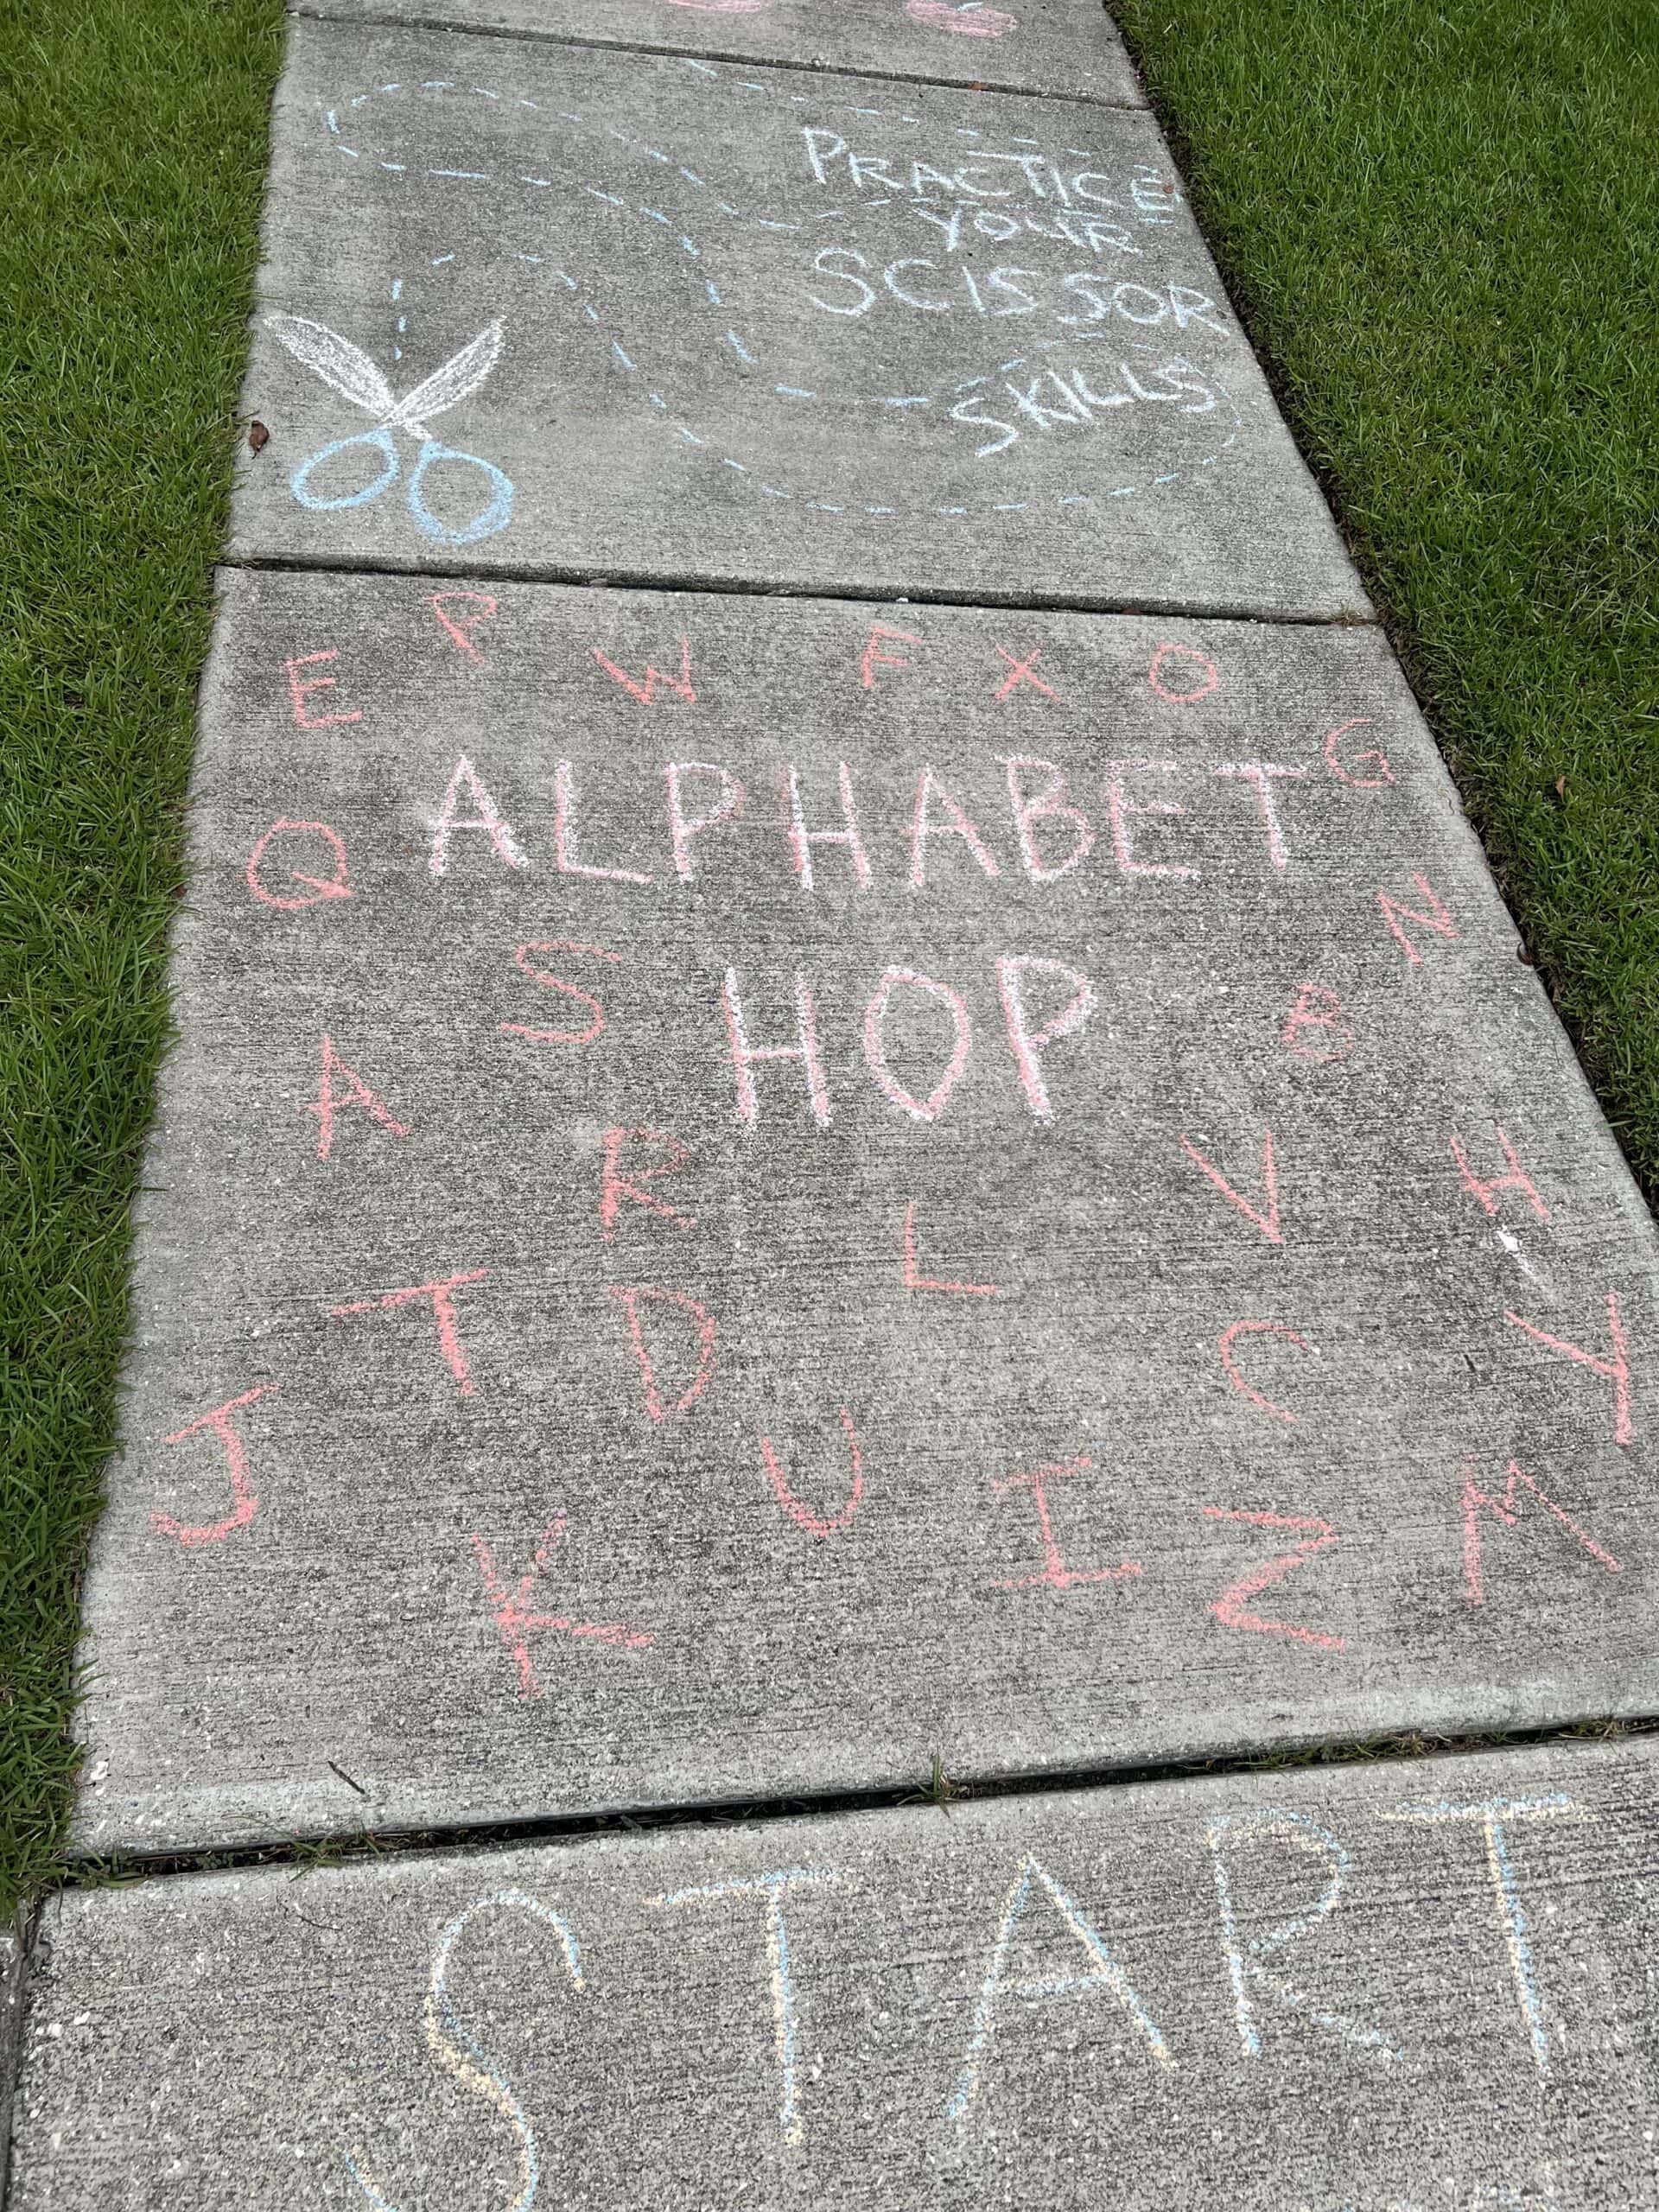 PRACTICE
YOUR
SCISSOR
SKILLS
E P W F X O
G
ALPHABET
Q
N
S HOP B
A
R V H
L
T D C Y
J U I Z M
K
START